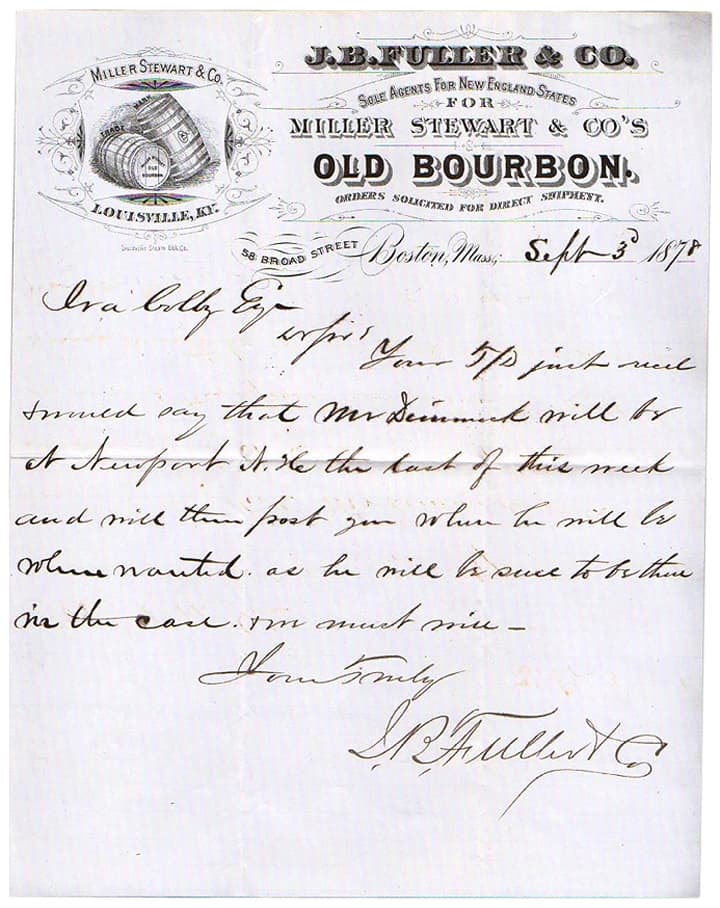 J.B. FULLER & CO.
SOLE AGENTS FOR NEW ENGLAND STATES
FOR
MILLER STEWART & CO'S
OLD BOURBON.
ORDERS SOLICITED FOR DIRECT SHIPMENT.
MILLER STEWART & CO.
TRADE MARK
OLD
BOURBON
LOUISVILLE, KY.
58 BROAD STREET Boston, Mass., Sept 3d 1878
Ira Colby Esq
Your just recd
& would say that Mr Dimmick will be
at Newport N.H. the last of this week
and will then post you where he will be
when wanted. as he will be sure to be there
in the case. & must
Yours Truly
J.B. Fuller & Co